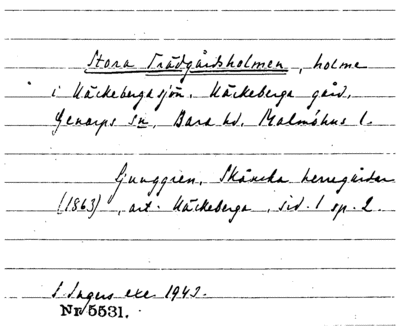 Stora Trädgårdsholmen, holme
i Häckebergasjön. Häckeberga gård,
Genarps sn, Bara hd, Malmöhus l.
Ljunggren, Skånska herregårdar
(1863), art. Häckeberga, sid. 1 sp. 2.
S. Ingers exc. 1943.
Nr 5531.